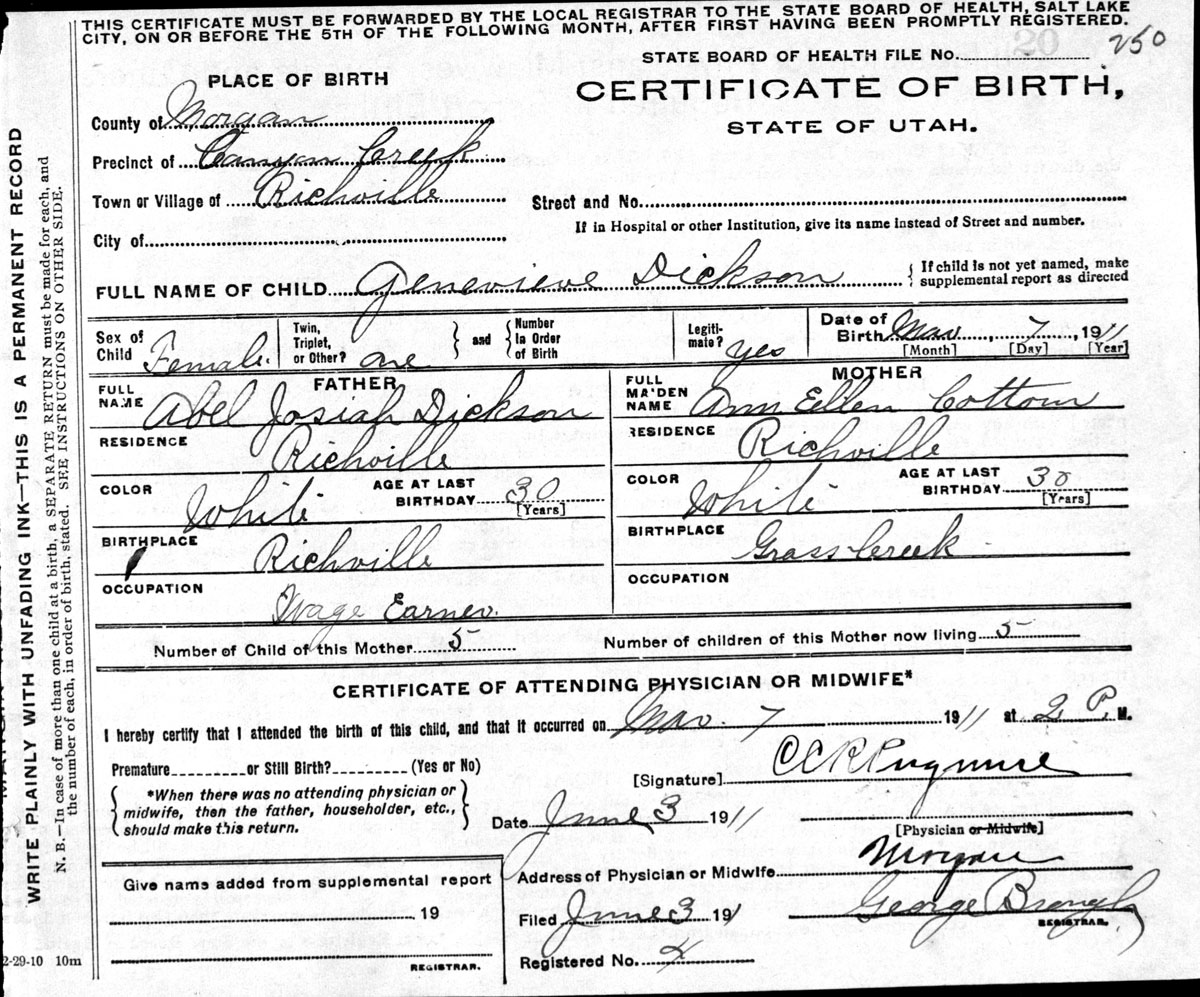 THIS CERTIFICATE MUST BE FORWARDED BY THE LOCAL REGISTRAR TO THE STATE BOARD OF HEALTH, SALT LAKE
CITY, ON OR BEFORE THE 5TH OF THE FOLLOWING MONTH, AFTER FIRST HAVING BEEN PROMPTLY REGISTERED.
250
STATE BOARD OF HEALTH FILE No.
PLACE OF BIRTH
CERTIFICATE OF BIRTH,
STATE OF UTAH.
County of Morgan
Precinct of Canyon Creek
Town or Village of Richville
Street and No.
If in Hospital or other Institution, give its name instead of Street and number.
City of
FULL NAME OF CHILD Genevieve Dickson
{ If child is not yet named, make
supplemental report as directed
Sex of
Child Female
Twin,
Triplet,
or Other? one
} and {
Number
in Order
of Birth
Legiti-
mate? yes
Date of
Birth Mar. 7, 1911
[Month] [Day] [Year]
FATHER
FULL
NAME Abel Josiah Dickson
MOTHER
FULL
MAIDEN
NAME Ann Ellen Cottom
RESIDENCE Richville
RESIDENCE Richville
COLOR White
AGE AT LAST
BIRTHDAY 30
[Years]
COLOR White
AGE AT LAST
BIRTHDAY 30
[Years]
BIRTHPLACE Richville
BIRTHPLACE Grass Creek
OCCUPATION Wage Earner.
OCCUPATION
Number of Child of this Mother 5
Number of children of this Mother now living 5
CERTIFICATE OF ATTENDING PHYSICIAN OR MIDWIFE*
I hereby certify that I attended the birth of this child, and that it occurred on Mar. 7 1911 at 2 P. M.
Premature or Still Birth? (Yes or No)
[Signature]
{ *When there was no attending physician or
midwife, then the father, householder, etc.,
should make this return. }
Date June 3 1911
[Physician or Midwife]
Address of Physician or Midwife Morgan
Give name added from supplemental report
19
REGISTRAR.
Filed June 3 191
George
REGISTRAR.
Registered No.
2-29-10 10m
WRITE PLAINLY WITH UNFADING INK—THIS IS A PERMANENT RECORD
N. B.—In case of more than one child at a birth, a SEPARATE RETURN must be made for each, and
the number of each, in order of birth, stated. SEE INSTRUCTIONS ON OTHER SIDE.